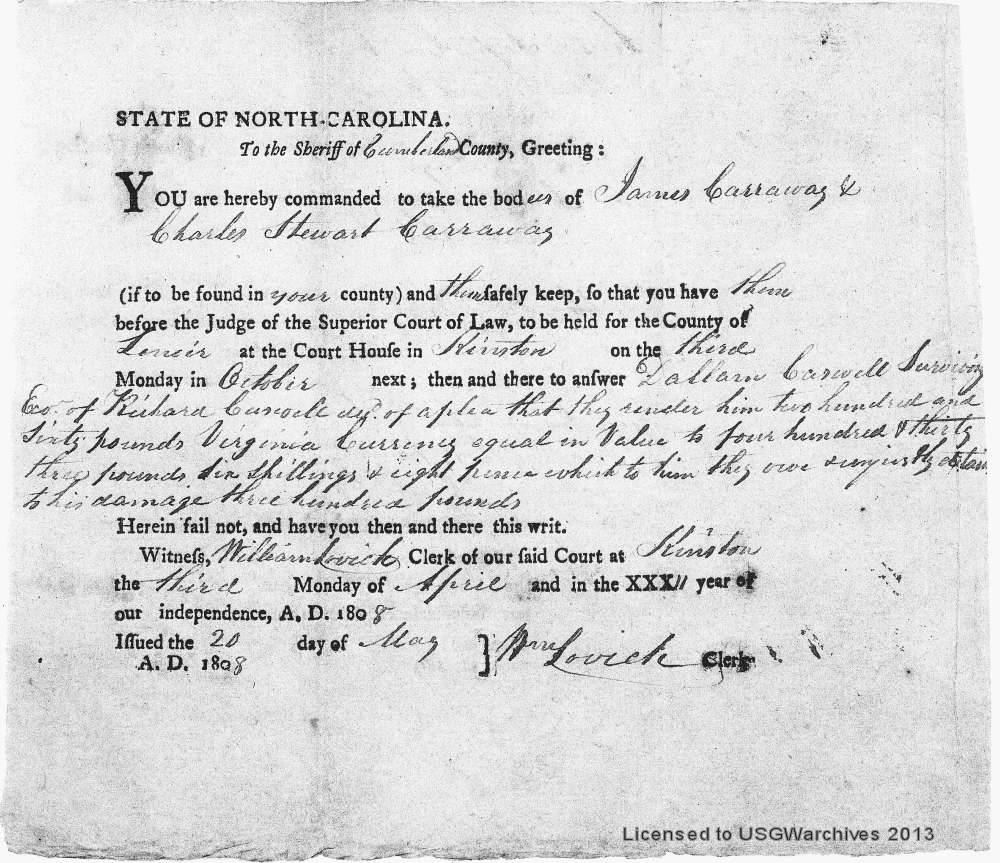 STATE OF NORTH-CAROLINA.
To the Sheriff of Cumberland County, Greeting:
YOU are hereby commanded to take the bodies of James Carraway &
Charles Stewart Carraway
(if to be found in your county) and them safely keep, so that you have them
before the Judge of the Superior Court of Law, to be held for the County of
Lenoir at the Court House in Kinston on the third
Monday in October next; then and there to answer Dallam Caswell Surviving
Exor. of Richard Caswell decd. of a plea that they render him two hundred and
Sixty pounds Virginia Currency equal in Value to four hundred & thirty
three pounds six shillings & eight pence which to him they owe & unjustly detain
to his damage three hundred pounds
Herein fail not, and have you then and there this writ.
Witness, William Lovick Clerk of our said Court at Kinston
the third Monday of April and in the XXXII year of
our independence, A. D. 1808
Issued the 20 day of May } Wm Lovick Clerk
A. D. 1808
Licensed to USGWarchives 2013